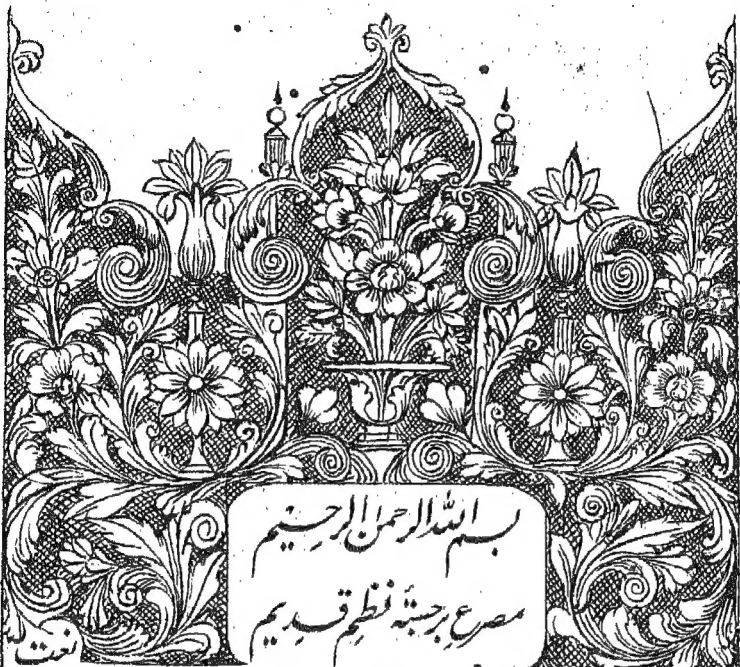 بسم الله الرحمن الرحیم
مصرعِ برجستۂ نظمِ قدیم
نعت